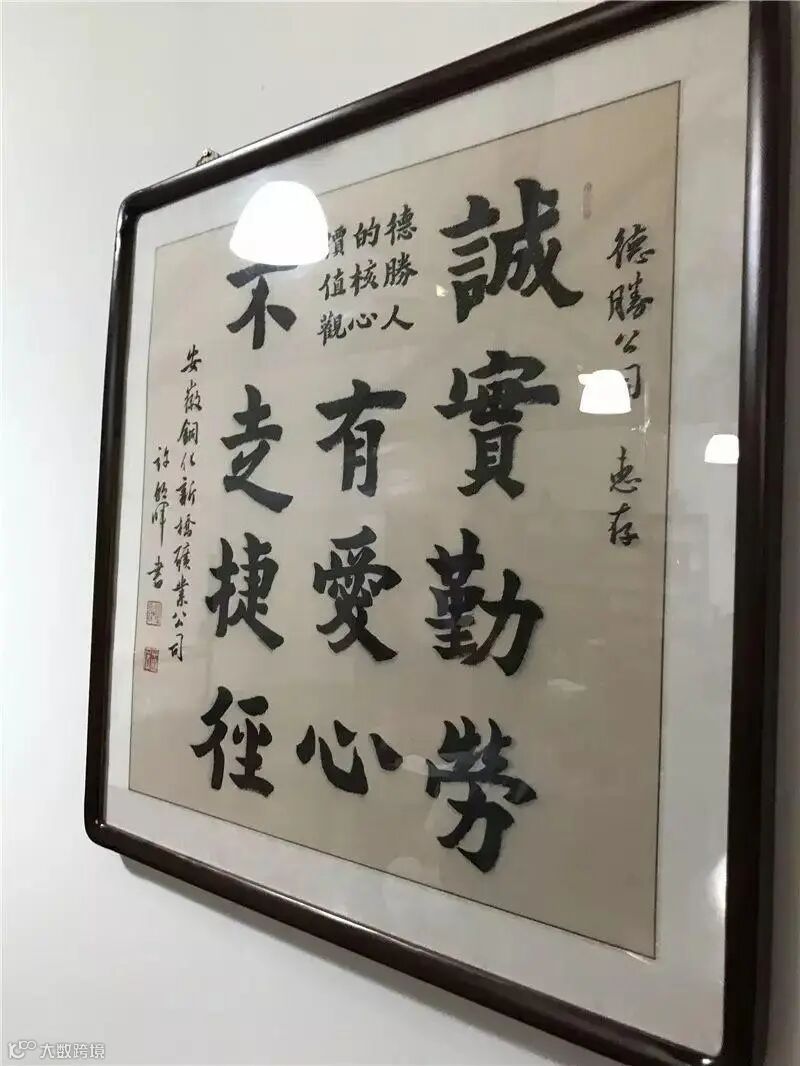 德勝公司 惠存
誠實勤勞
德勝人
的核心
價值觀
有愛心
不走捷徑
安徽銅化新橋礦業公司
許暉 書
大数跨境